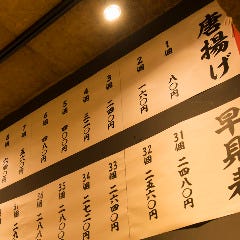 唐揚げ
早見表
1個 八〇円
2個 一六〇円
3個 二四〇円
4個 三二〇円
5個 四〇〇円
6個 四八〇円
7個 五六〇円
8個 六四〇円
31個 二四八〇円
32個 二五六〇円
33個 二六四〇円
34個 二七二〇円
35個 二八〇〇円